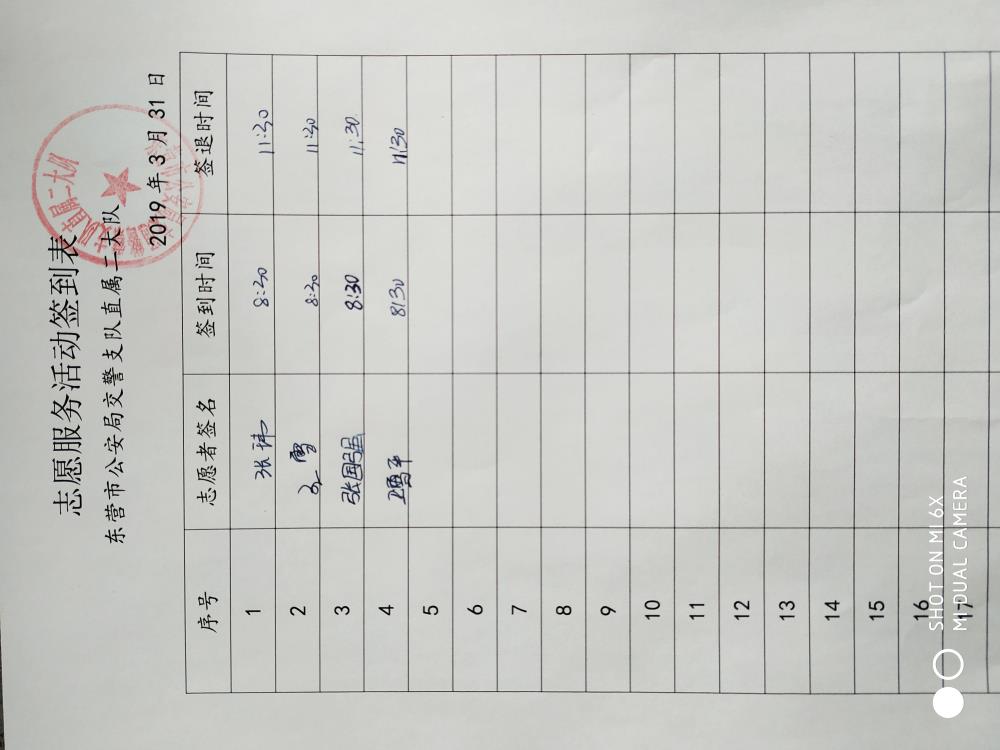 志愿服务活动签到表
东营市公安局交警支队直属二大队
2019年3月31日
序号 志愿者签名 签到时间 签退时间
1 张 8:30 11:30
2 8:30 11:30
3 张国强 8:30 11:30
4 8:30 11:30
5
6
7
8
9
10
11
12
13
14
15
16
17
SHOT ON MI 6X
MI DUAL CAMERA